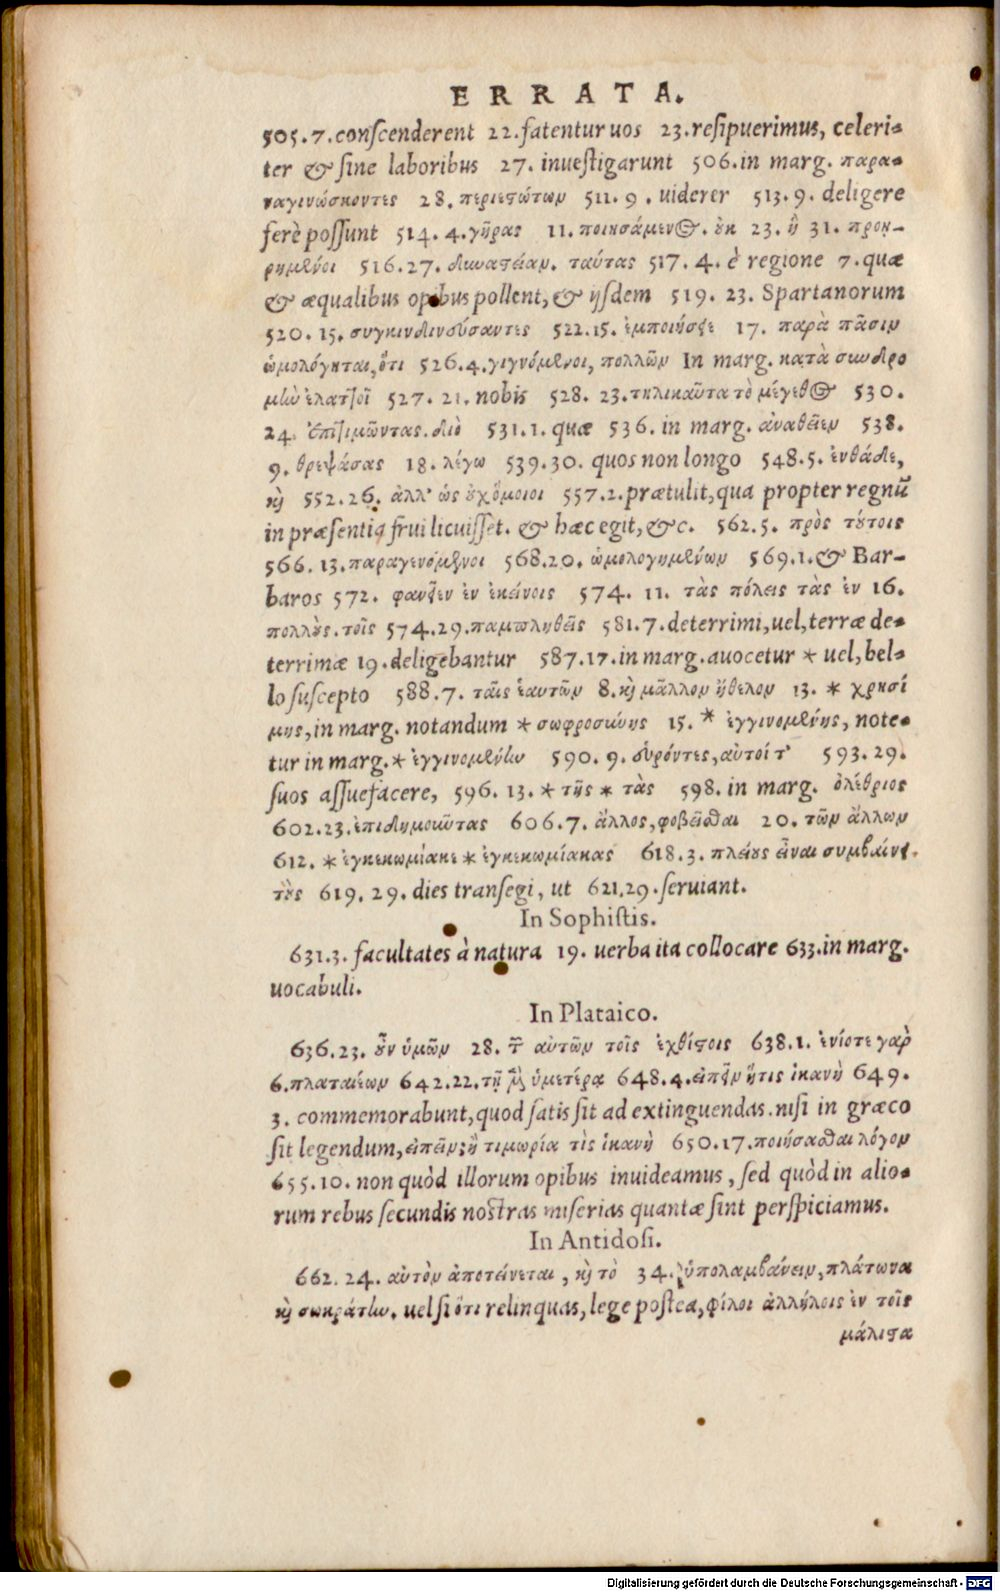 ERRATA.
505.7.conſcenderent 22.fatentur uos 23.reſipuerimus, celeri-
ter & ſine laboribus 27. inueſtigarunt 506.in marg. παρα-
ναγινώσκοντες 28. περιεϛώτων 511. 9. uiderer 513. 9. deligere
ferè poſſunt 514. 4.γῆρας 11. ποιησάμεν⊙. ȣκ 23. ἢ 31. προῃ-
ρημένοι 516.27. δυναϛείαν. ταύτας 517. 4. è regione 7.quæ
& æqualibus opibus pollent, & ijſdem 519. 23. Spartanorum
520. 15. συγκινδινεύσαντες 522.15. ἐμποιήσειε 17. παρὰ πᾶσιν
ὡμολόγηται, ὅτι 526.4.γιγνόμενοι, πολλῶν In marg. κατὰ συνδρο
μὴν ἐλατ]οῖ 527. 21. nobis 528. 23.τηλικαῦτα τὸ μέγεθ⊙ 530.
24. ἐπιτιμῶντας. διὸ 531.1. quæ 536. in marg. ἀναθεῖεν 538.
9. θρεψάσας 18. λέγω 539.30. quos non longo 548.5. ἐνθάδε,
κὶ 552.26. ἀλλ' ὡς ȣχ ὅμοιοι 557.2.prætulit, qua propter regnũ
in præſentia frui licuiſſet. & hæc egit, &c. 562.5. πρὸς τȣτοις
566. 13.παραγενόμενοι 568.20. ὡμολογημένων 569.1.& Bar-
baros 572. φανεῖεν ἐν ἐκείνοις 574. 11. τὰς πόλεις τὰς ἐν 16.
πολλȣς.τοῖς 574.29.παμπληθεῖς 581.7.deterrimi, uel, terræ de-
terrimæ 19.deligebantur 587.17.in marg.auocetur * uel, bel-
lo ſuſcepto 588.7. ταῖς ἑαυτῶν 8.κὶ μᾶλλον ἤθελον 13. * χρησί
μης, in marg. notandum * σωφροσύνης 15. * ἐγγινομένης, note-
tur in marg. * ἐγγινομένην 590. 9. εὑρόντες, αὐτοί τ' 593. 29.
ſuos aſſuefacere, 596. 13. * τῆς * τὰς 598. in marg. ὀλέθριος
602.23.ἐπιδημοῦντας 606.7. ἄλλος, φοβεῖσθαι 20. τῶν ἄλλων
612. * ἐγκεκωμίακε * ἐγκεκωμίακας 618.3. πλείȣς εἶναι συμβαίνει.
τȣς 619. 29. dies tranſegi, ut 621.29.ſeruiant.
In Sophiſtis.
631.3. facultates à natura 19. uerba ita collocare 633.in marg.
uocabuli.
In Plataico.
636.23. ȣν ὑμῶν 28. τ αὐτῶν τοῖς ἐχθίϛοις 638.1. ἐνίοτε γὰρ
6.πλαταιέων 642.22.τῇ ὑμετέρᾳ 648.4. ἥτις ἱκανὴ 649.
3. commemorabunt, quod ſatis ſit ad extinguendas.niſi in græco
ſit legendum, τιμωρία τὶς ἱκανὴ 650.17.ποιήσασθαι λόγον
655.10. non quòd illorum opibus inuideamus, ſed quòd in alio-
rum rebus ſecundis noſtras miſerias quantæ ſint perſpiciamus.
In Antidoſi.
662. 24. αὐτὸν ἀποτείνεται, κὶ τὸ 34. ὑπολαμβάνειν, πλάτωνα
κὶ σωκράτην. uel ſi ὅτι relinquas, lege poſtea, φίλοι ἀλλήλοις ἐν τοῖς
μάλιϛα
Digitalisierung gefördert durch die Deutsche Forschungsgemeinschaft - DFG